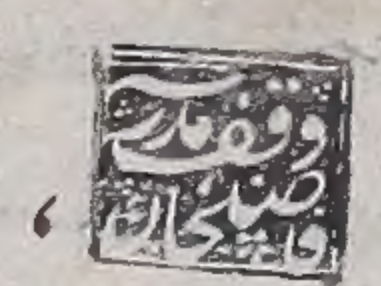 وقف مدرسه
فاضلخان